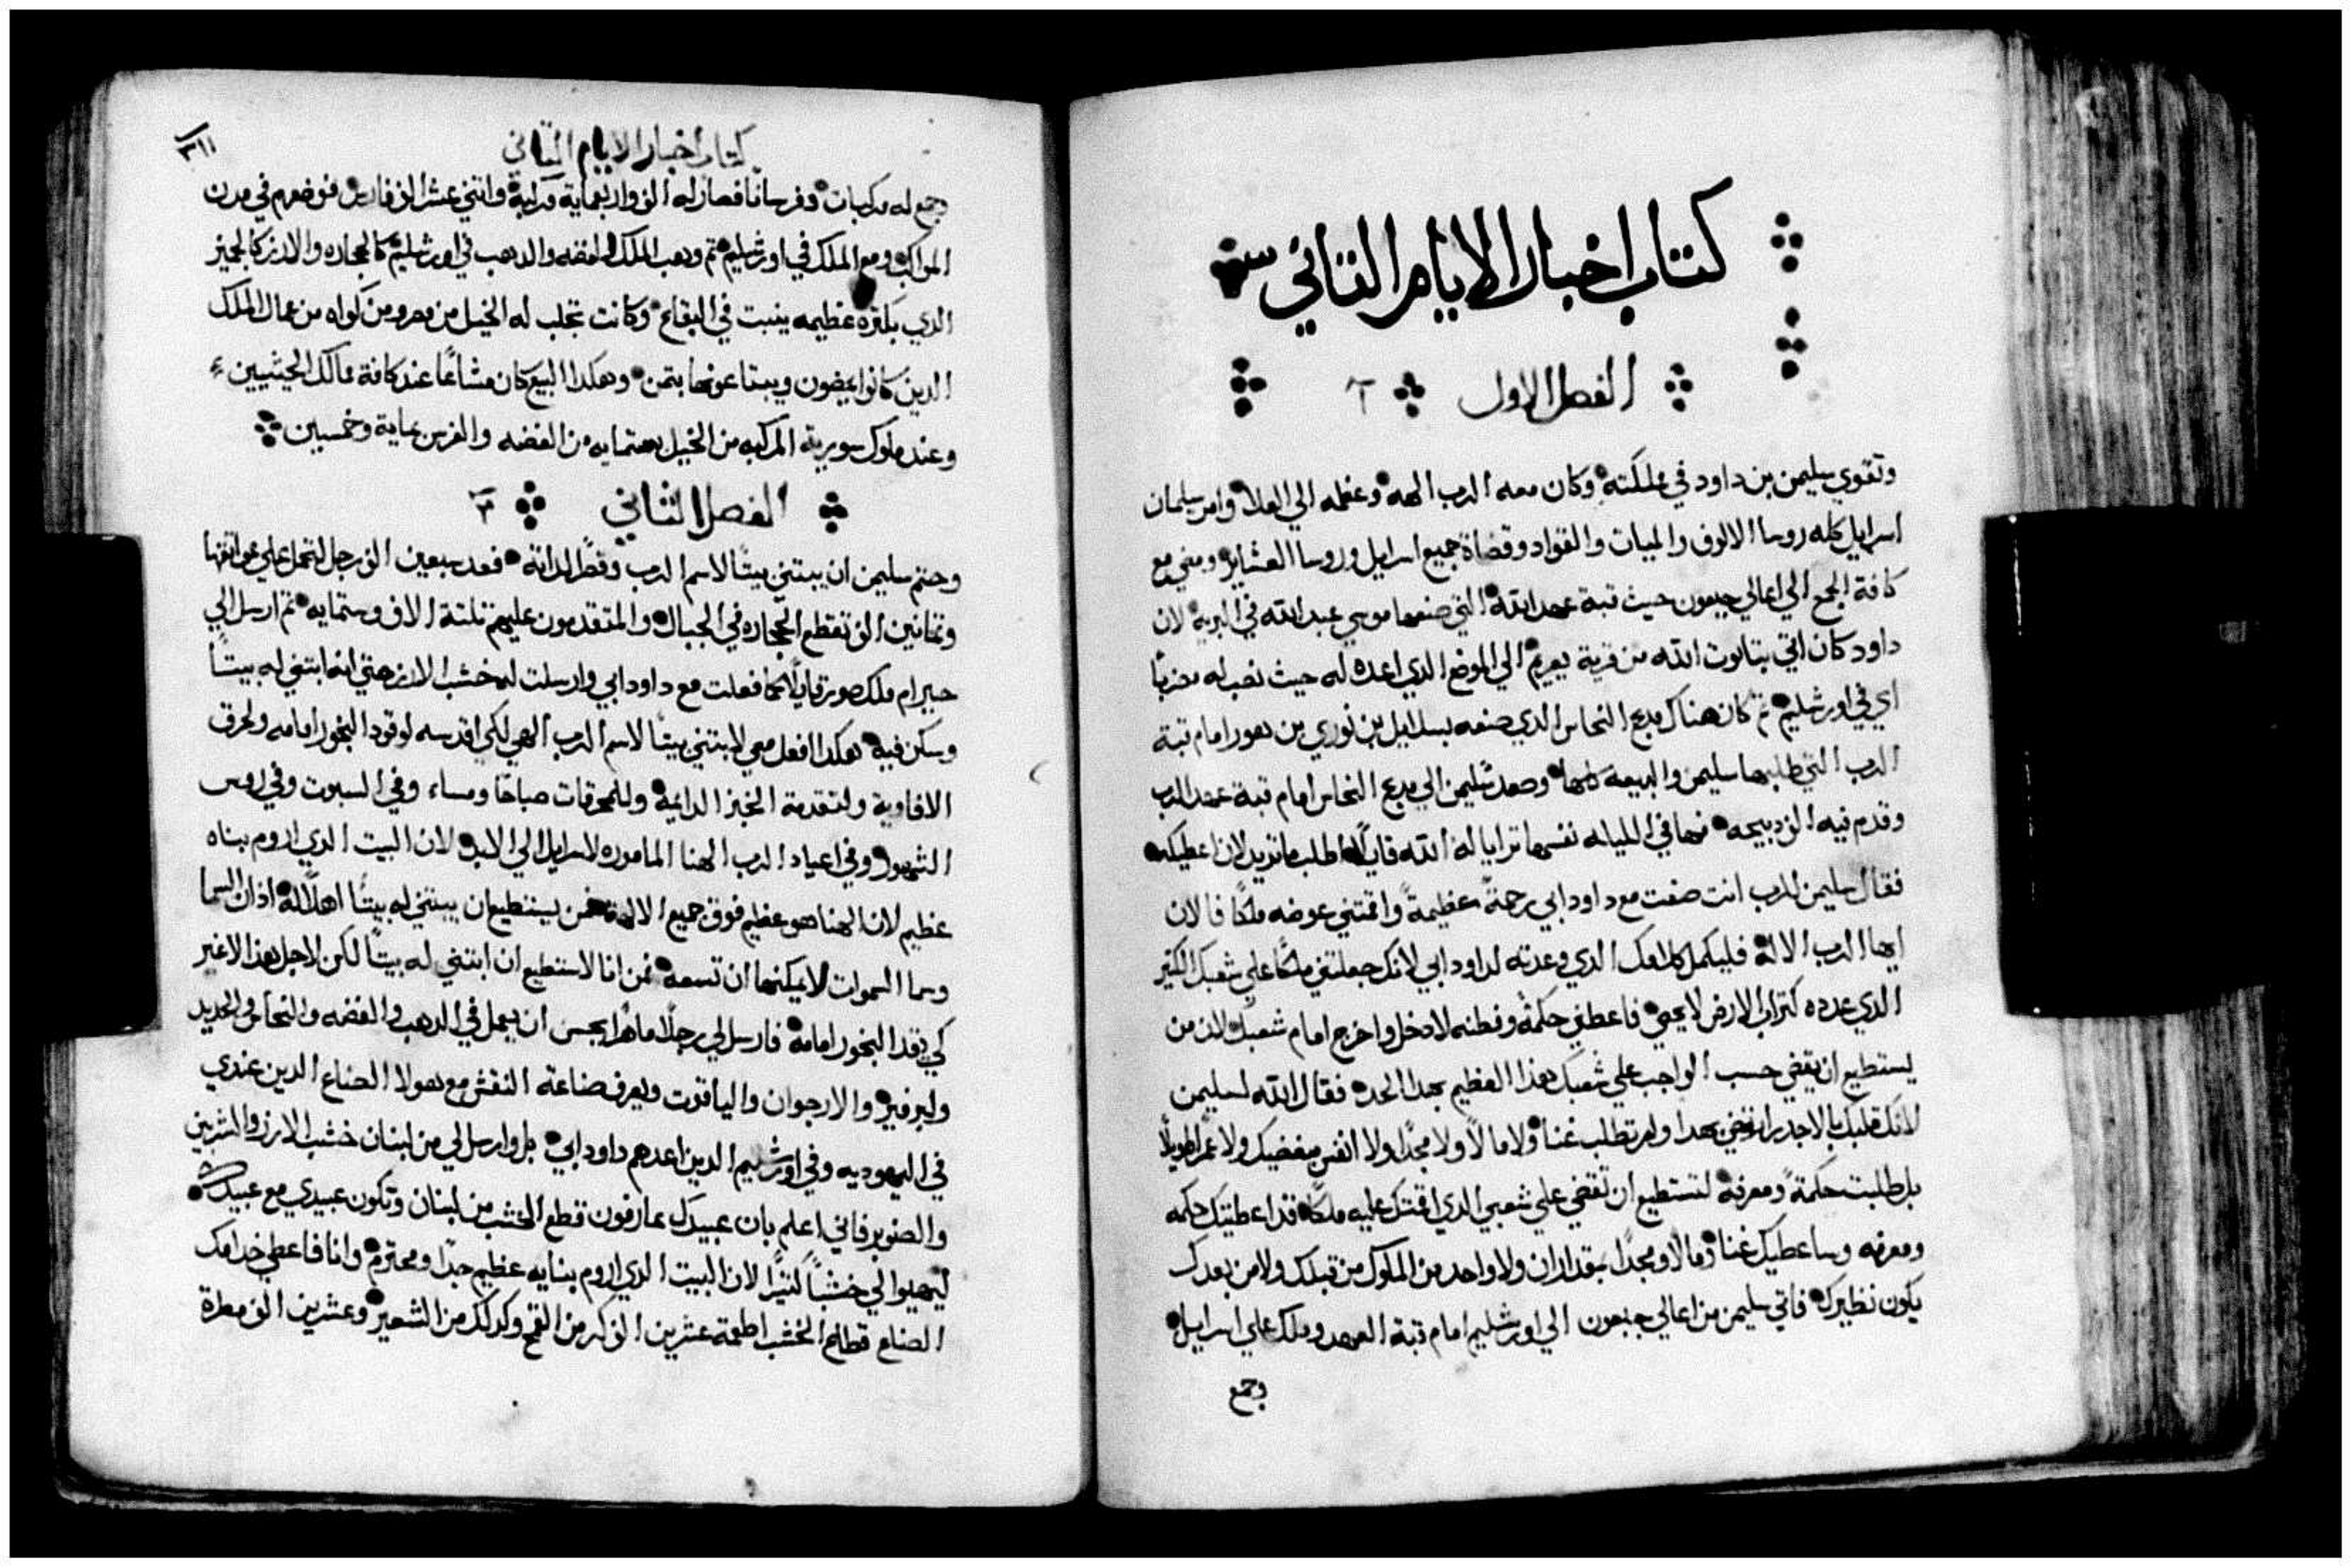 كتاب اخبار الايام التاني
الفصل الاول
وتقوي سليمن بن داود في مملكته وكان معه الرب الهه وعظمه الي العلا وامر سليمان
اسرايل كله روسا الالوف والميات والقواد وقضاة جميع اسرايل وروسا العشاير ومضي مع
كافة الجمع الي اعالي جبعون حيث قبة عهد الله التي صنعها موسي عبد الله في البرية لان
داود كان اتي بتابوت الله من قرية يعريم الي الموضع الدي اعده له حيث نصب له مضربا
اي في اورشليم تم كان هناك مدبح النحاس الدي صنعه بسلايل بن نوري بن هور امام قبة
الرب التي طلبها سليمن والبيعه كلها وصعد سليمن الي مدبح النحاس امام قبة عهد الرب
وقدم فيه الف دبيحه فها في الليله نفسها ترايا له الله قايلا اطلب ما تريد لان اعطيكه
فقال سليمن للرب انت صنعت مع داود ابي رحمة عظيمة واقمتني عوضه ملكا فالان
ايها الرب الاله فليكمل كلامك الدي وعدته لداود ابي لانك جعلتني ملكا علي شعبك الكتير
الدي عدده كتراب الارض لا يحصي فاعطني حكمة وفطنه لادخل واخرج امام شعبك لان من
يستطيع ان يقضي حسب الواجب علي شعبك هذا العظيم بهدا الحد فقال الله لسليمن
لانك قلبك بالاجدر ارتضي بهدا ولم تطلب غناً ولا مالاً ولا مجداً ولا انفس مبغضيك ولا عمراً طويلاً
بل طلبت حكمةً ومعرفة لتستطيع ان تقضي علي شعبي الدي اقمتك عليه ملكاً قد اعطيتك حكمه
ومعرفه وساعطيك غناً ومالا ومجداً بمقدار ان ولا واحد من الملوك من قبلك ولا من بعدك
يكون نظيرك فاتي سليمن من اعالي جبعون الي اورشليم امام قبة العهد وملك علي اسرايل
وجمع
كتاب اخبار الايام التاني
٣١١
وجمع له مركبات وفرساناً فصار له الف واربعماية مركبة واتني عشر الف فارس فوضعهم في مدن
المراكب ومع الملك في اورشليم تم وهب الملك الفضه والدهب في اورشليم كالحجاره والارز كالجميز
الدي بكترة عظيمه ينبت في البقاع وكانت تجلب له الخيل من مصر ومن كواه من عمال الملك
الدين كانوا يمضون ويبتاعونها بتمن وهكدا البيع كان مشاعاً عند كافة ممالك الحيثيين
وعند ملوك سورية المركبه من الخيل بستمايه من الفضه والفرس بماية وخمسين
الفصل الثاني
وحتم سليمن ان يبتني بيتاً لاسم الرب وقصراً لداته فعد سبعين الف رجل لتحمل علي عواتقها
وتمانين الف تقطع الحجاره في الجبال والمتقدمون عليهم تلتة الاف وستمايه تم ارسل الي
حيرام ملك صور قايلاً كما فعلت مع داود ابي وارسلت له خشب الارز حتي انه ابتني له بيتاً
وسكن فيه هكدا افعل معي لابتني بيتاً لاسم الرب الهي لكي اقدسه لوقود البخور امامه ولحرق
الافاوية ولتقدمة الخبز الدايمة وللمحرقات صباحًا ومساء وفي السبوت وفي روس
الشهور وفي اعياد الرب الهنا الماموره لاسرايل الي الابد لان البيت الدي اروم بناه
عظيم لان الهنا هو عظيم فوق جميع الالهة فمن يستطيع ان يبتني له بيتًا اهلاً له اذ ان السما
وسما السموات لا يمكنها ان تسعه فمن انا لاستطيع ان ابتني له بيتاً لكن لاجل هذا لا غير
كي يقد البخور امامه فارسل لي رجلاً ماهراً يحسن ان يعمل في الدهب والفضه والنحاس والحديد
والبرفير والارجوان والياقوت ويعرف صناعة النقش مع هولا الصناع الدين عندي
في اليهوديه وفي اورشليم الدين اعدهم داود ابي بل وارسل لي من لبنان خشب الارز والشربين
والصنوبر فاني اعلم بان عبيدك عارفون قطع الخشب من لبنان وتكون عبيدي مع عبيدك
ليهيوا لي خشباً كتيراً لان البيت الدي اروم بنايه عظيم جدّا ومحترم وانا فاعطي خدامك
الصناع قطاع الخشب اطعمة عشرين الف كر من القمح وكدلك من الشعير وعشرين الف مطرة